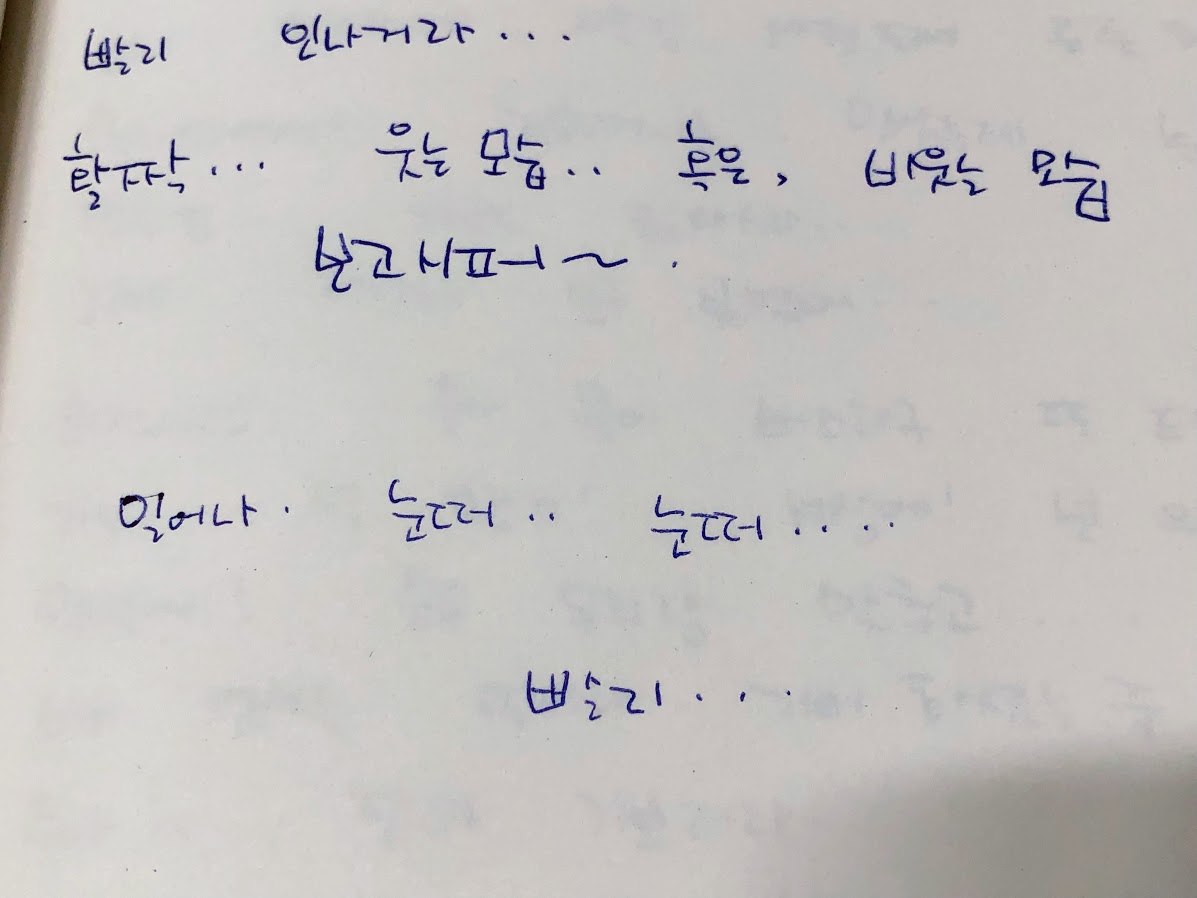 빨리 인나거라...
활짝... 웃는 모습.. 혹은, 비웃는 모습
보고시퍼~.
일어나. 눈떠.. 눈떠....
빨리...